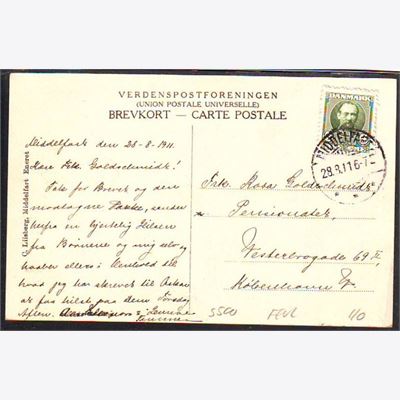 VERDENSPOSTFORENINGEN
(UNION POSTALE UNIVERSELLE)
BREVKORT — CARTE POSTALE
DANMARK
MIDDELFART
28.8.11 6-7
C. Lilsberg, Middelfart Eneret
Middelfart den 28-8-1911.
Kære Frk. Goldschmidt!
Tak for Brevet og den
modtagne Pakke, sender
herfra en hjertelig Hilsen
fra Børnene og mig selv og
haaber ellers i Henhold til
hvad jeg har skrevet til Oskar
at faa hilst paa dem Torsdag
Aften.
Frk. Rosa Goldschmidt
Pensionatet,
Vesterbrogade 69
København
5500
110